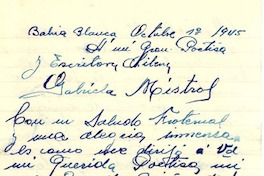 Bahia Blanca Octubre 12 1945
A mi Gran Poetisa
y Escritora Chilena
Gabriela Mistral
Con un Saludo Fraternal
y una alegria inmensa
es como me dirijo á Vd
mi Querida Poetisa, mi